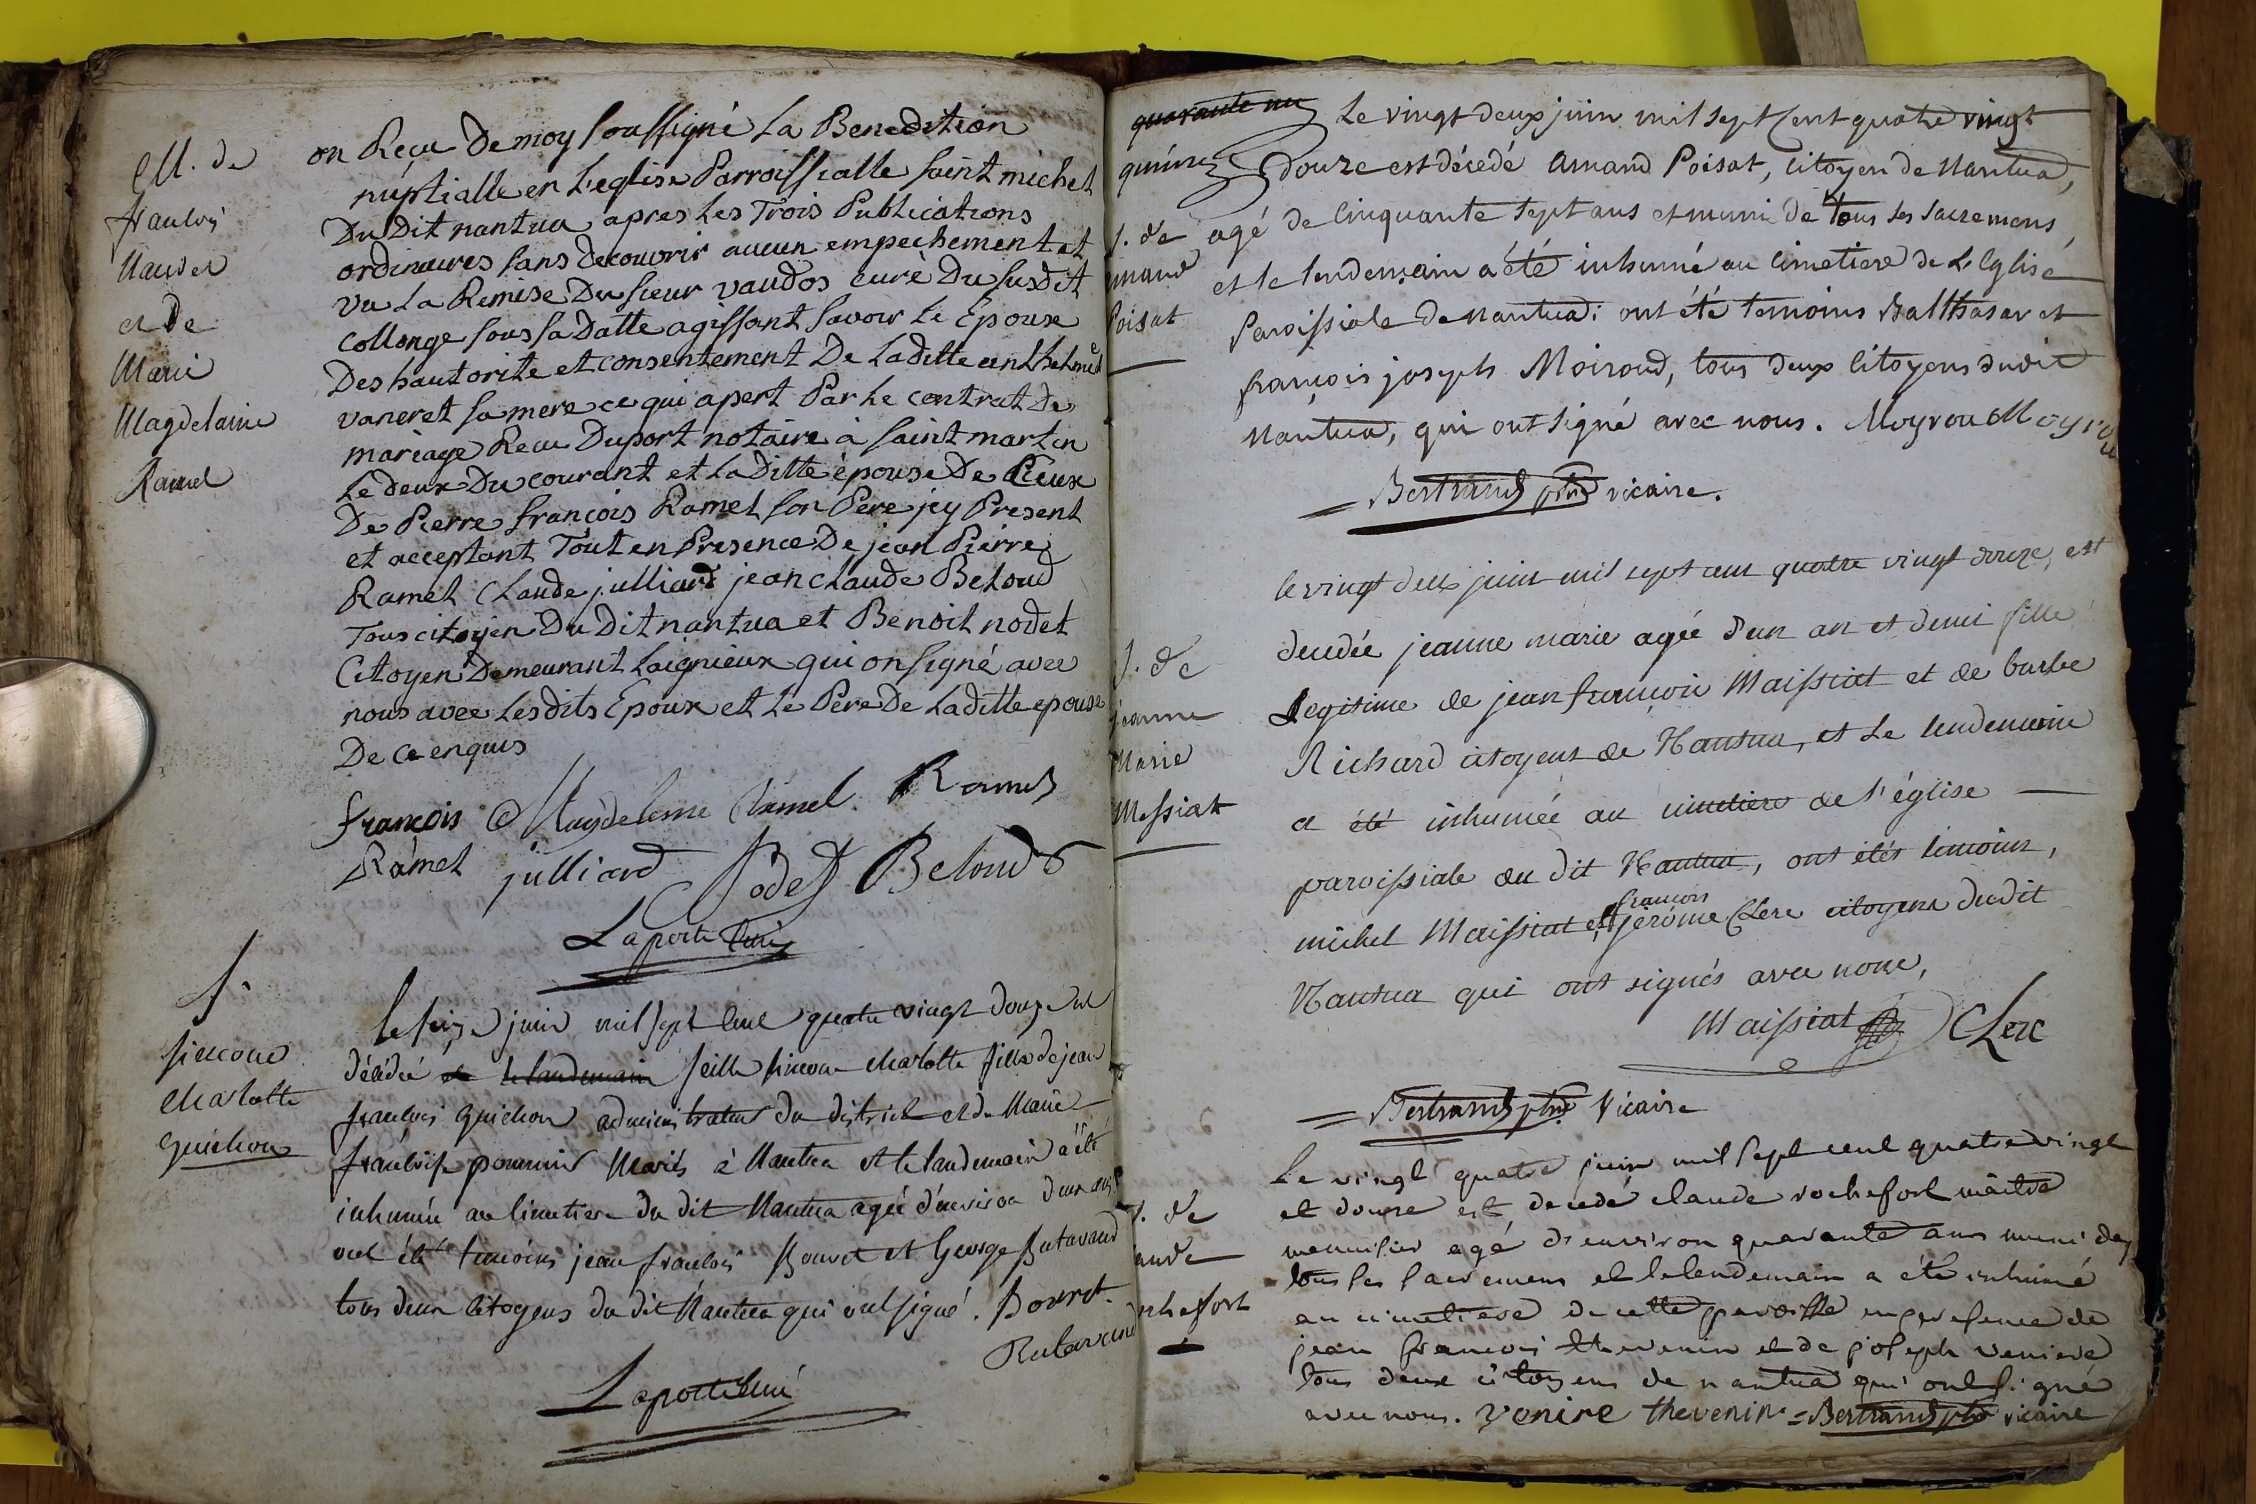 M. de
francois
et de
Marie
Magdelaine
Ramel
on Recu De moy soussigné La Benedition
nuptialle en L'eglise Parroissialle saint michel
Du Dit nantua apres Les Trois Publications
ordinaires sans Decouvrir aucun empechement et
vu La Remise Du sieur vaudos curé Du susdit
Collonge sous sa Datte agissant savoir Le Epoux
Des hautorite et consentement De Laditte
vaneret sa mere ce qui apert Par Le contrat De
mariage Recu Duport notaire à saint martin
Le deux Du courant et La Ditte épouse De Celux
De Pierre francois Ramel son Pere jcy Present
et acceptant Tout en Presence De jean Pierre
Ramel Claude julliard jean claude Beloud
Tous citoyen Du Dit nantua et Benoit nodet
Citoyen Demeurant Laignieux qui on signé avec
nous avec Lesdits Epoux et Le Pere De Laditte epouse
De ce enquis
francois Magdeleine Ramel Ramel
Ramel julliard Nodet Beloud
Laporte Curé
S.
simeone
charlotte
Guichon
le seize juin mil sept cent quatre vingt douze est
décédée et le landemain feille simeone charlotte fille de jean
francois guichon administrateur du district et de Marie
françoise mariés à Nantua et le landemain a été
inhumée au Cimetiere du dit Nantua agée d'environ deux ans
ont été temoins jean francois Bouvet et George Butavand
tous deux Citoyens du dit Nantua qui ont signé. Bouvet.
Butavand
Laporte Curé
quarante un
quinze
Le vingt deux juin mil sept Cent quatre vingt
douze est décédé Amand Poisat, Citoyen de Nantua,
S. de
amand
Poisat
agé de Cinquante sept ans et muni de tous les sacremens,
et le lendemain a été inhumé au Cimetiere de L'Eglise
Paroissiale de nantua: ont été temoins Balthasar et
françois joseph Moiroud, tous deux Citoyens dudit
Nantua, qui ont signé avec nous. Moyrou Moyrou
= Bertrand ptre vicaire.
S. de
jeanne
Marie
Messiat
le vingt deux juin mil sept cent quatre vingt douze, est
decedée jeanne marie agée d'un an et demi fille
Legitime de jean francois Maissiat et de barbe
Richard citoyens de Nantua, et le lendemain
a été inhumée au cimetiere de l'église
paroissiale du dit Nantua, ont étés temoins,
michel Maissiat et françois jérôme Clerc citoyens dudit
Nantua qui ont signés avec nous,
Maissiat Clerc
= Bertrand ptre Vicaire
S. de
aude
ochefort
Le vingt quatre juin mil sept cent quatre vingt
et douze est decedé claude rochefort maitre
menuisier agé d'environ quarante ans muni de
tous les sacremens et le lendemain a été inhumé
au cimetiere de cette paroisse en presence de
jean francois thevenin et de joseph venire
tous deux citoyens de nantua qui ont signé
avec nous. Venire thevenin = Bertrand ptre vicaire